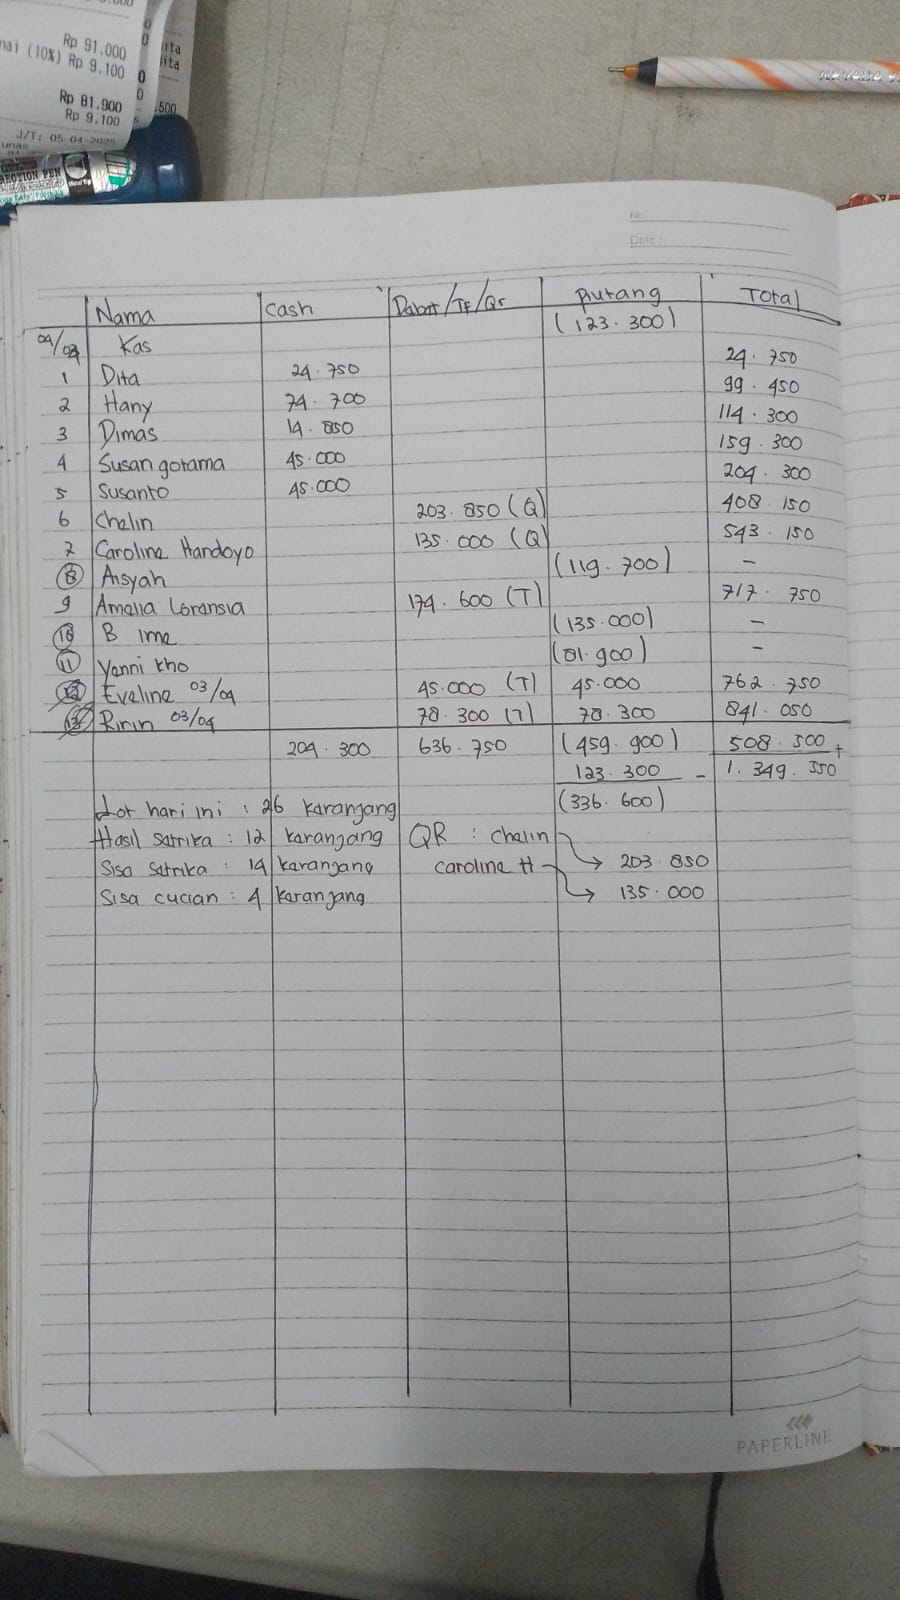 Rp 91.000
nai (10%) Rp 9.100
Rp 81.900
Rp 9.100
.500
J/T: 05-04-2025
unas
No.
Date :
Nama Cash Debet/TF/Qr Piutang Total
04/04 Kas (123.300)
1 Dita 24.750 24.750
2 Hany 74.700 99.450
3 Dimas 14.850 114.300
4 Susan gotama 45.000 159.300
5 Susanto 45.000 204.300
6 Chelin 203.850 (Q) 408.150
7 Caroline Handoyo 135.000 (Q) 543.150
8 Aisyah (119.700) -
9 Amelia Loransia 174.600 (T) 717.750
10 B Ime (135.000) -
11 Yenni kho (81.900) -
12 Eveline 03/04 45.000 (T) 45.000 762.750
13 Ririn 03/04 78.300 (T) 78.300 841.050
204.300 636.750 (459.900) 508.300 +
123.300 - 1.349.350
(336.600)
hari ini : 26 karanjang
Hasil satrika : 12 karanjang QR : chelin → 203.850
Sisa satrika : 14 karanjang caroline H → 135.000
Sisa cucian : 4 karanjang
PAPERLINE